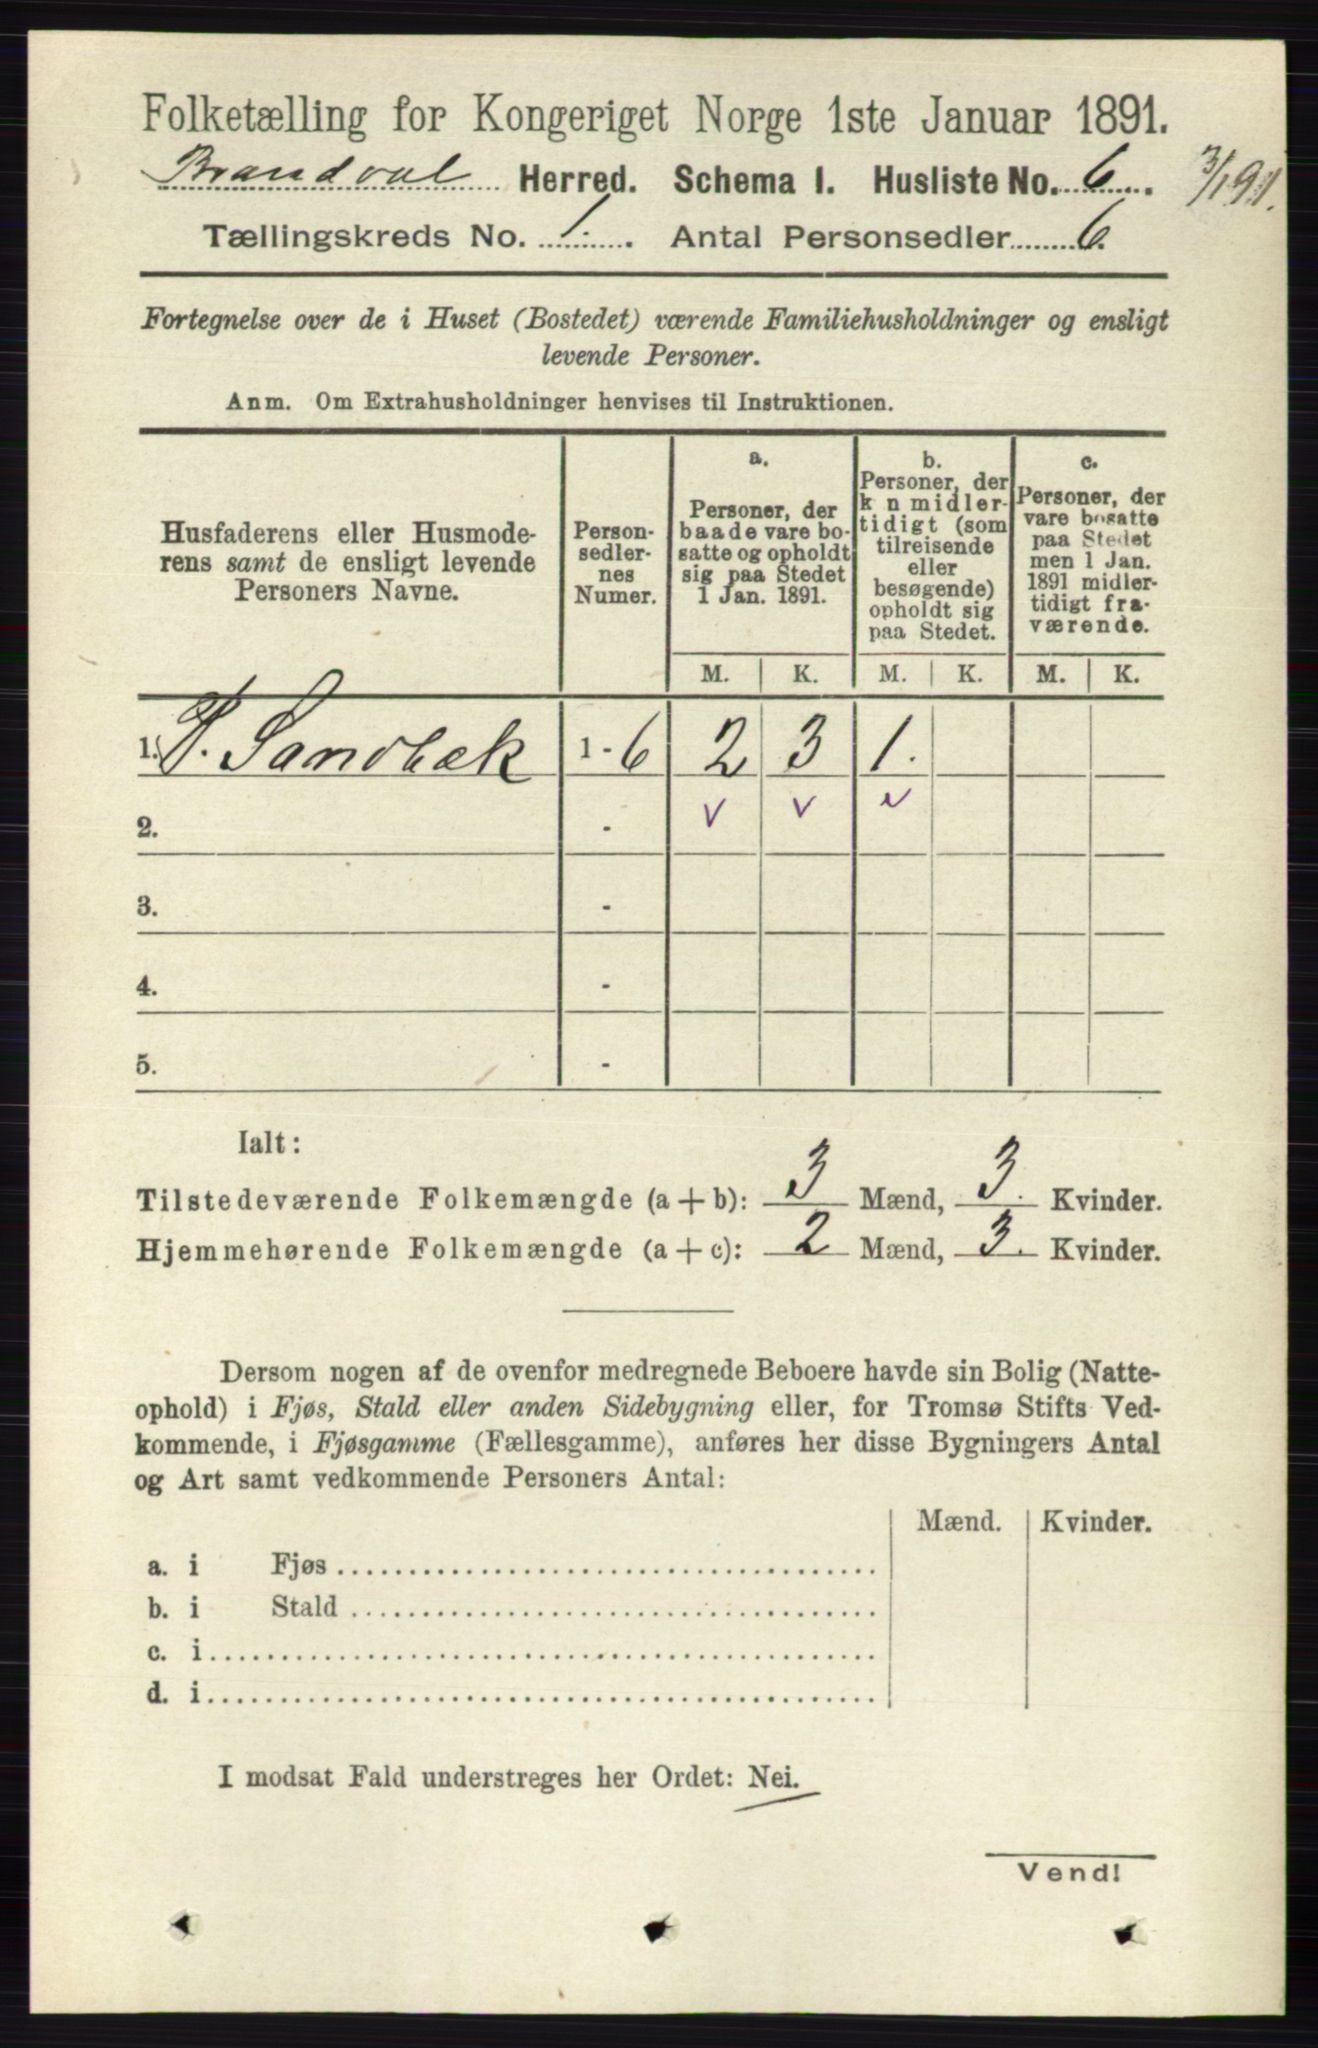 Folketælling for Kongeriget Norge 1ste Januar 1891.
Brandval Herred. Schema I. Husliste No. 6. 3/1 91.
Tællingskreds No. 1. Antal Personsedler 6.
Fortegnelse over de i Huset (Bostedet) værende Familiehusholdninger og ensligt
levende Personer.
Anm. Om Extrahusholdninger henvises til Instruktionen.
Husfaderens eller Husmode-
rens samt de ensligt levende
Personers Navne.
Person-
sedler-
nes
Numer.
a.
Personer, der
baade vare bo-
satte og opholdt
sig paa Stedet
1 Jan. 1891.
b.
Personer, der
k n midler-
tidigt (som
tilreisende
eller
besøgende)
opholdt sig
paa Stedet.
c.
Personer, der
vare bosatte
paa Stedet
men 1 Jan.
1891 midler-
tidigt fra-
værende.
M. K. M. K. M. K.
1. P. Sandbæk 1 - 6 2 3 1.
2. -
3. -
4. -
5. -
Ialt:
Tilstedeværende Folkemængde (a + b): 3 Mænd, 3. Kvinder.
Hjemmehørende Folkemængde (a + c): 2 Mænd, 3. Kvinder.
Dersom nogen af de ovenfor medregnede Beboere havde sin Bolig (Natte-
ophold) i Fjøs, Stald eller anden Sidebygning eller, for Tromsø Stifts Ved-
kommende, i Fjøsgamme (Fællesgamme), anføres her disse Bygningers Antal
og Art samt vedkommende Personers Antal:
Mænd. Kvinder.
a. i Fjøs
b. i Stald
c. i
d. i
I modsat Fald understreges her Ordet: Nei.
Vend!